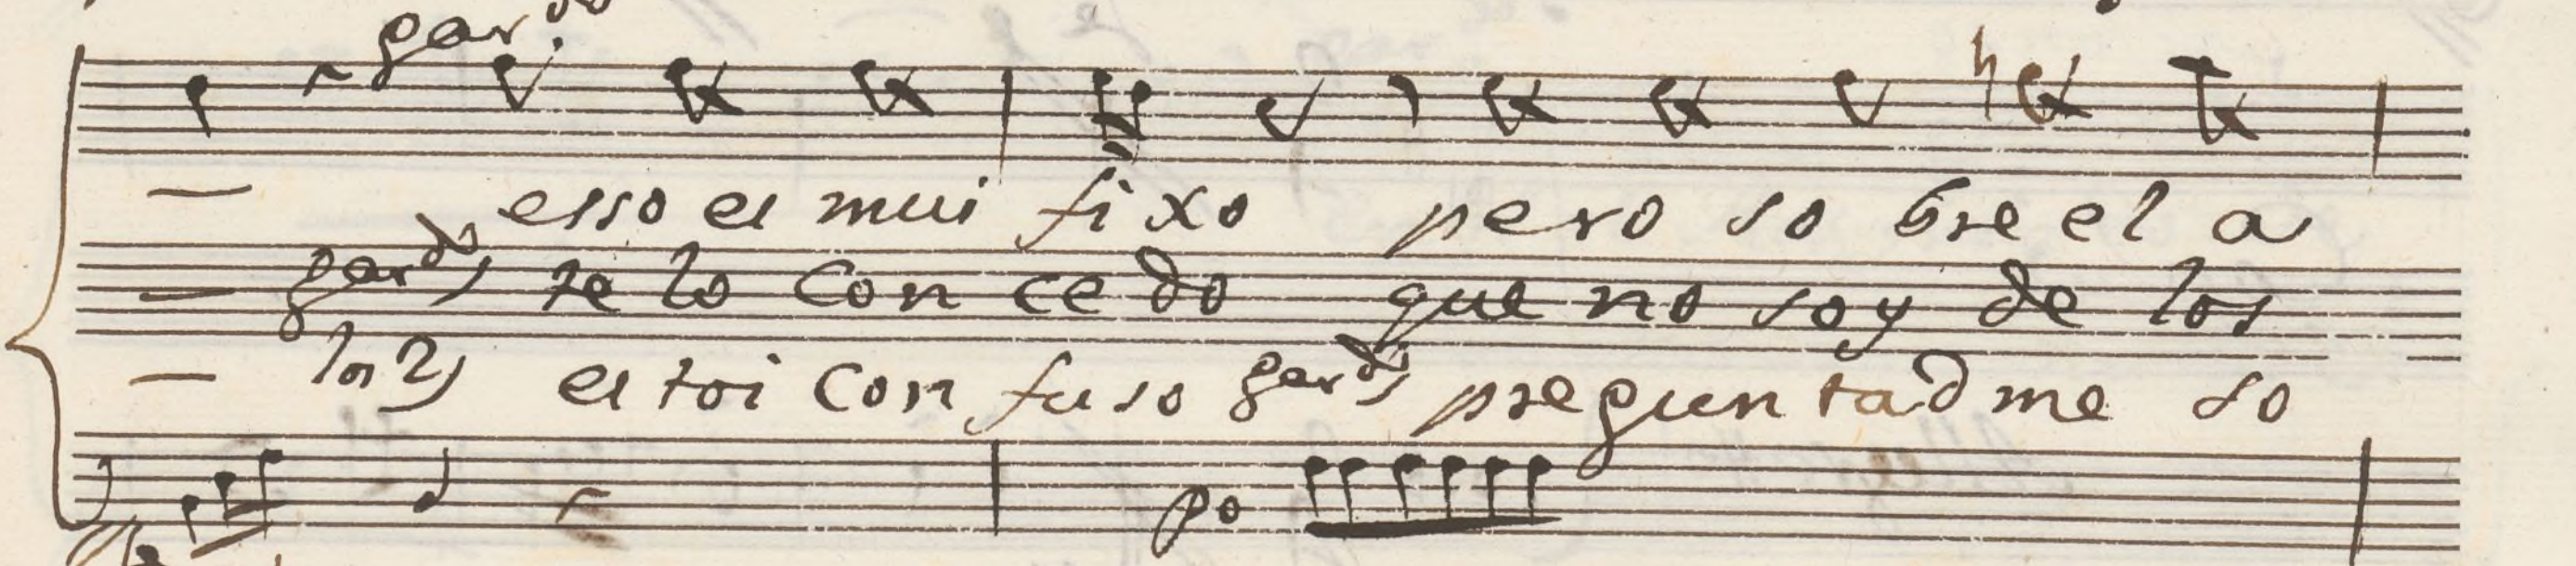 gar.do
— esso es mui fi xo pero so bre el a
— gar.do) te lo con ce do que no soy de los
— los 2) es toi con fu so gar.do) pregun tad me so
po